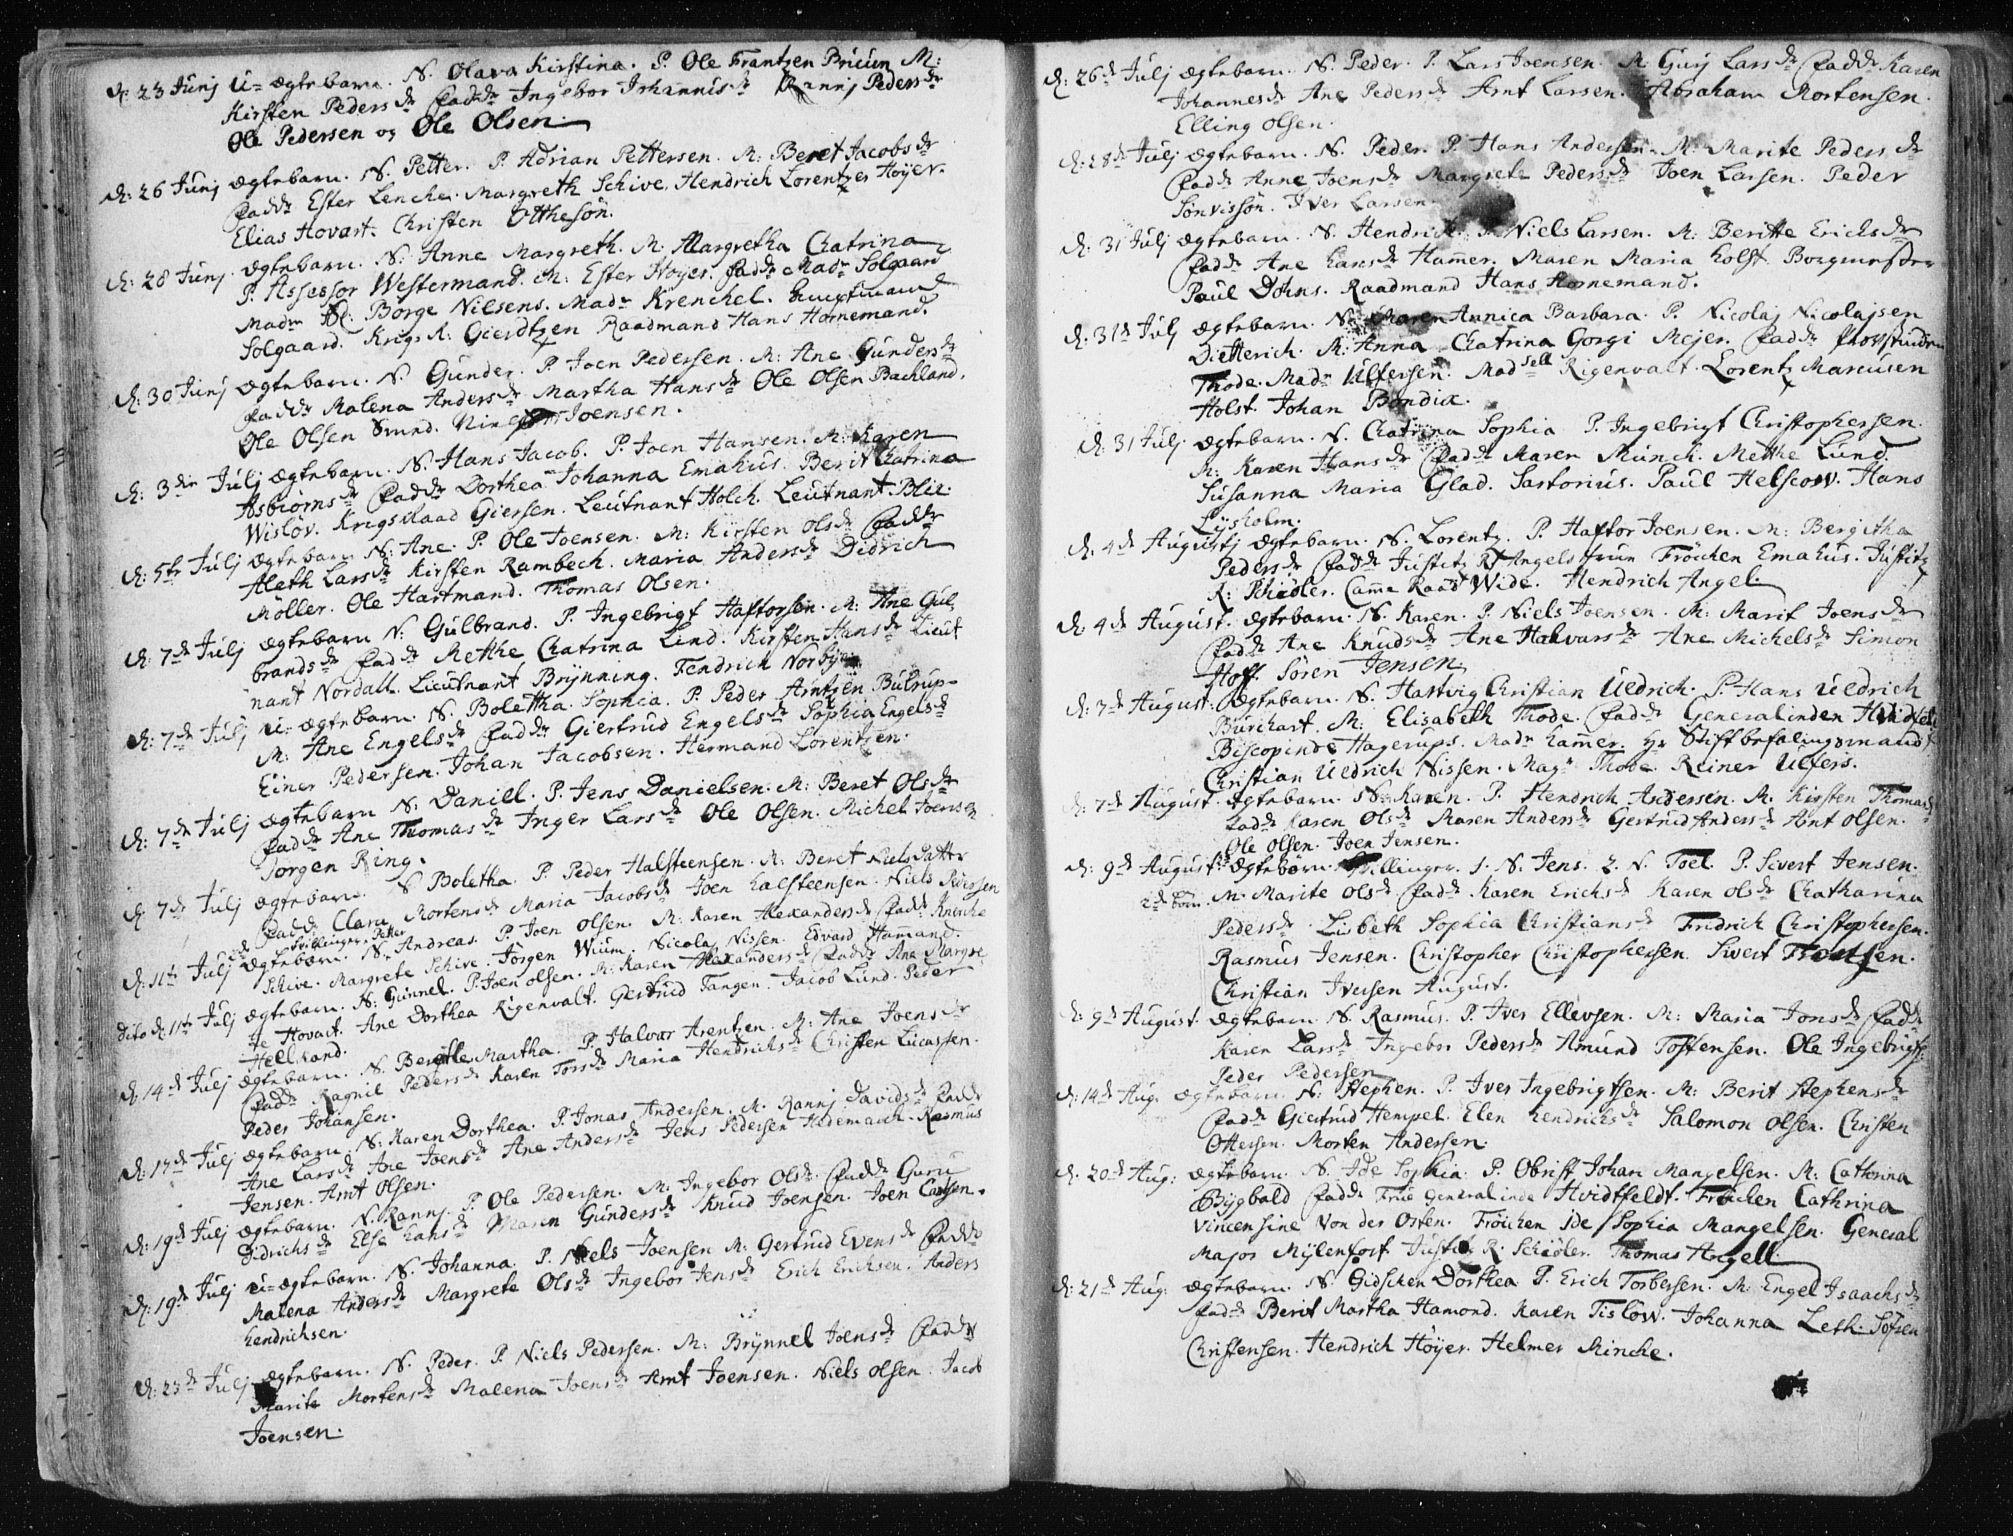 d: 23 Junj U-ægtebarn. N. Olava Kirstina. P. Ole Frantzen Bricün M:
Kirsten Pedersdr Faddr Ingebor Johannisdr Rannj Pedersdr
Ole Pedersen og Ole Olsen.
d: 26 Junj ægtebarn. N. Petter. P. Adrian Pettersen. M: Beret Jacobsdr
Faddr Ester Lenche. Margreth Schive. Hendrich Lorentzes Höyer.
Elias Hovart. Christen Otthesön.
d: 28 Junj. ægtebarn. N. Anne Margreth. M. Margretha Chatrina
P. Assessor Westermand. M: Ester Höyer. Faddr Madm Solgaard
Madm Borge Nilsens. Madm Krenchel.
Solgaard. Krigs R: Gierdtzen Raadmand Hans Hornemand.
d: 30 Junj ægtebarn. N. Gunder. P. Joen Pedersen. M: Ane Gundersdr
Faddr Malena Andersdr Martha Hansdr Ole Olsen Bachland.
Ole Olsen Smed. Niels Joensen.
d: 3die Julj ægtebarn. N. Hans Jacob. P. Joen Hansen. M: Karen
Asbiørnsdr Faddr Dorthea Johanna Emahus. Berit Catrina
Wisløv. Krigs Raad Giersen. Leutnant Holch. Leutnant Blix.
d: 5te Julj ægtebarn N: Ane. P. Ole Joensen. M: Kirsten Olsdr Faddr
Aleth Larsdr Kirsten Rambech. Maria Andersdr Didrich
Möller. Ole Hartmand. Thomas Olsen.
d: 7de Julj ægtebarn N: Gulbrand. P. Ingebrigt Haftorsön. M: Ane Gul
brandsdr Faddr Metthe Chatrina Lind. Kirsten Hansdr Lieut
nant Nordall. Lieutnant Brÿnning. Fendrich Norbye
d: 7de Julj U-ægtebarn. N. Bolettha. Sophia. P. Peder Arntzen Bulrup.
M: Ane Engelsdr Faddr Giertrud Engelsdr Sophia Engelsdr
Einer Pedersen. Johan Jacobsen. Hermand Lorentzen.
d: 7de Julj ægtebarn N. Daniell. P. Jens Danielsen. M: Beret Olsdr
Faddr Ane Thomasdr Inger Larsdr Ole Olsen. Michel Joensen
Jorgen Ring.
d: 7de Julj ægtebarn. N Boletha. P. Peder Halsteensen. M: Beret Nielsdatter
Faddr Clara Mortensdr Maria Jacobsdr Joen Halsteensen. Niels
Tvillinger. Petter
d. 11te Julj ægtebørn. N. Andreas. P. Joen Olsen. M: Karen Alexandersdr Faddr Kniche
Schive. Margrete Schive. Jörgen Wium. Nicolaj Nissen. Edvard Hammand.
dito d: 11te Julj ægtebarn. N: Gunnel. P. Joen Olsen. M: Karen Alexandersdr Faddr Ane Margre
te Hovart. Ane Dorthea Rigenvalt. Gertrud Tangen. Jacob Lund. Peder
Hellsand.
d. 14de Julj ægtebarn. N. Berethe Martha. P. Halvor Arentzen. M: Ane Joensdr
Faddr Ragnil Pedersdr Karen Torsdr Maria Hendrichsdr Christen Lucassen.
Peder Johansen.
d. 17de Julj ægtebarn N: Karen Dorthea. P. Jonas Andersen. M. Rannj Davidsdr Faddr
Ane Larsdr Ane Joensdr Ane Andersdr Jens Pedersen Hedemarch. Rasmus
Jensen. Arnt Olsen.
d: 19de Julj ægtebarn. N. Rannj. P. Ole Pedersen. M: Ingebor Olsdr Faddr Guru
Didrichsdr Else Hansdr Maren Gundersdr Knud Joensen. Joen Carlsen.
d: 19de Julj U-ægtebarn. N. Johanna. P. Niels Joensen M: Gertrud Evensdr Faddr
Malena Andersdr Margrete Olsdr Ingebor Jensdr Erich Erichsen. Anders
hendrichsen.
d: 23de Julj ægtebarn. N. Peder. P. Niels Pedersen. M: Brÿnnel Joensdr Faddr
Marite Mortensdr Malena Joensdr Arnt Joensen. Niels Olsen. Jacob
Joensen.
d: 26de Julj ægtebarn. N. Peder. P. Lars Joensen. M: Gurj Larsdr Faddr Karen
Johannesdr Ane Pedersdr Arnt Larsen. Abraham Mortensen.
Elling Olsen.
d: 28de Julj ægtebarn. N. Peder. P. Hans Andersen. M: Marite Pedersdr
Faddr Anne Joensdr Margrete Pedersdr Joen Larsen. Peder
Sönvissön. Iver Larsen.
d: 31 Julj ægtebarn. N. Hendrich. P. Niels Larsen. M: Beritte Ericksdr
Faddr Ane Hansdr Hamer. Maren Maria Holst. Borgmester
Paul Döhns. Raadmand Hans Hornemand.
d: 31te Julj ægtebarn. N. Maren Annica Barbara. P. Nicolaj Nicolajsen
Dietterich. M: Anna Chatrina Gorgi Mejer. Faddr Provstinden
Thode. Madm Ulfersen. Madsell Rigenvalt. Lorentz Marcusen
Holst. Johan Bendix.
d: 31 Julj. ægtebarn. N. Chatrina Sophia P. Ingebrigt Christophersen.
M: Karen Hansdr Faddr Maren Münch. Metthe Lund.
Susanna Maria Glad. Sartorius. Paul Helscow. Hans
Lysholm.
d: 4de Augustj ægtebarn. N. Lorentz. P. Haftor Joensen. M: Bergitha
Pedersdr Faddr Justitz Rt Angels frue Fröchen Emahus. Justitz
R: Schiöler. Came Raad Wide. Hendrich Angel.
d. 4de August. ægtebarn N. Karen. P. Niels Joensen. M: Marit Joensdr
Faddr Ane Knudsdr Ane Halvarsdr Ane Michelsdr Simon
Hoff. Sören Jensen.
d: 7de August: ægtebarn. N. Hartvig Christian Uldrich. P. Hans Uldrich
Burchart. M: Elisabeth Thode. Faddr Generalinden Hvidtfeld
Biscopinde Hagerups. Madm Hamer. Hr Stiftbefalingsmand
Christian Uldrich Nissen. Magr Thode. Reiner Ulfers.
d: 7de August. ægtebarn. N. Karen. P. Hendrich Andersen. M. Kirsten Thomasdr
Faddr Karen Olsdr Maren Andersdr Gertrud Andersdr Arnt Olsen.
Ole Olsen. Joen Jensen.
d: 9de August: ægtebørn Tvillinger. 1. N. Jens. 2. N. Joel. P. Sivert Jensen.
2de Børn. M: Marite Olsdr Faddr Karen Erichsdr Karen Olsdr Chatharina
Pedersdr Lisbeth Sophia Christiansdr Fridrich Christophersen.
Rasmus Jensen. Christopher Christophersen. Sivert Troutsen.
Christian Iversen August.
d: 9de August. ægtebarn N. Rasmus. P. Iver Ellevsen. M: Maria Jonsdr Faddr
Karen Larsdr Ingebor Pedersdr Amund Tostensen. Ole Ingebrigts.
Peder Pedersen
d: 14de Aug: ægtebarn. N: Stephen. P. Iver Ingebrigtsen. M: Berit Stephensdr
Faddr Giertrud Hempel. Elen hendrichsdr Salomon Olsen. Christen
Ottersen. Morten Andersen.
d: 20de Aug: ægtebarn. N. Ide Sophia. P. Obrist Johan Mangelsen. M: Cathrina
Bÿgbald Faddr Frue Generalinde Hvidtfeldt. Fröichen Cathrina
Vincensine von der Osten. Fröichen Ide Sophia Mangelsen. General
Major Mÿlenfort Justitz R: Schiöler. Thomas Angell.
d: 21de Aug: ægtebarn. N. Gidschen Dorthea P. Erich Torbersen. M: Engel Isaachsdr
Faddr Berit Martha Hamond. Karen Tislöw. Johanna Leth. Sofren
Christensen. Hendrich Höyer. Helmer Minche.